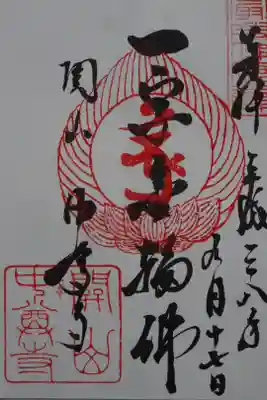 奉拝 平成二八年
九月十七日
一字金輪佛
関山 中尊寺
關山
中尊寺